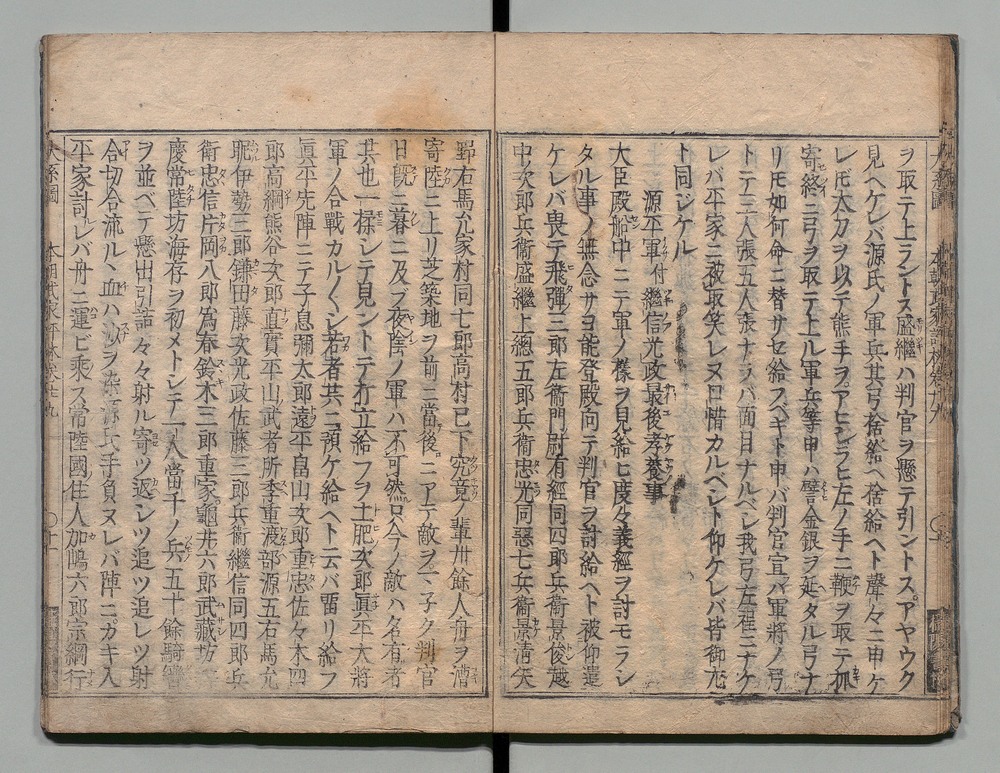 ヲ取テ上ラントス盛繼ハ判官ヲ懸テ引ントスアヤウク
見ヘケレバ源氏ノ軍兵其弓捨給ヘ捨給ヘト聲々ニ申ケ
レ𪜈太刀ヲ以テ熊手ヲアヒシラヒ左ノ手ニ鞭ヲ取テ
寄終ニ弓ヲ取テ上ル軍兵等申ハ譬金銀ヲ延ベタル弓ナ
リ𪜈如何命ニ替サセ給フベキト申バ判官宣バ軍將ノ弓
トテ三人張五人張ナラバ面目ナルベシ我弓左程ニナケ
レバ平家ニ被取笑レヌ口惜カルベシト仰ケレバ皆御尤
ト同シケル
源平軍付繼信光政最後孝養事
大臣殿船中ニテ軍ノ樣ヲ見給ヒ度々義經ヲ討モラシ
タル事ノ無念サヨ能登殿向テ判官ヲ討給ヘト被仰遣
ケレバ畏テ飛彈三郎左衛門尉有經同四郎兵衛景俊越
中次郎兵衛盛繼上總五郎兵衛忠光同惡七兵衛景淸矢
野右馬允家村同七郎高村已下究竟ノ輩卅餘人舟ヲ漕
寄陸ニ上リ芝築地ヲ前ニ當後ニアテ敵ヲ子ク判官
日既ニ暮ニ及ブ夜陰ノ軍ハ不可然只今ノ敵ハ名有者
共也一樣シテ見ントテ打立給フヲ土肥次郎眞平大將
軍ノ合戰カル〱シ若者共ニ預ケ給ヘト云バ留リ給フ
眞平先陣ニテ子息彌太郎遠平畠山次郎重忠佐々木四
郎高綱熊谷次郎直實平山武者所季重渡部源五右馬允
眤伊勢三郎鎌田藤次光政佐藤三郎兵衛繼信同四郎兵
衛忠信片岡八郎爲春鈴木三郎重家龜井六郎武藏坊
慶常陸坊海存ヲ初メトシテ一人當千ノ兵五十餘騎轡
ヲ並ベテ懸出引詰々々射ル寄ツ返シツ追ツ追レツ射
合切合流ルヽ血ハ沙ヲ染源氏手負ヌレバ陣ニカキ入
平家討レバ舟ニ運ビ乘ス常陸國住人加嶋六郎宗綱行